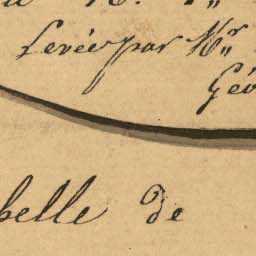 Levée par Mr
Géo
belle de